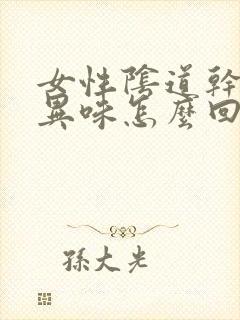 女性陰道幹
異味怎麼回
孫大光